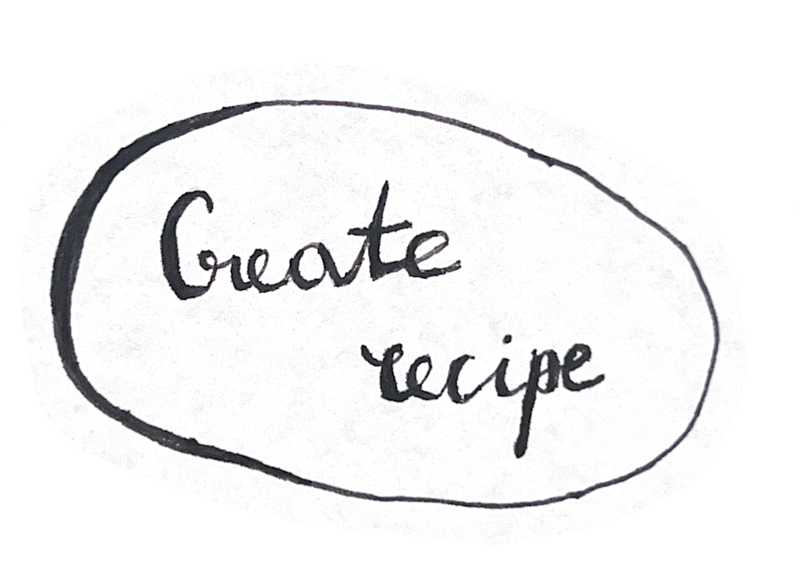 Create
recipe